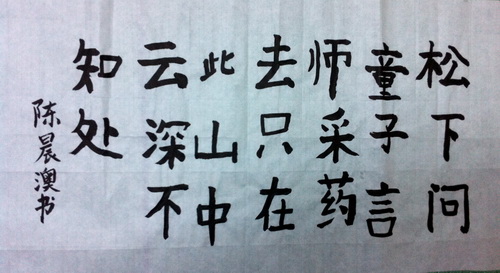 松下问
童子言
师采药
去只在
此山中
云深不
知处
陈晨澳书